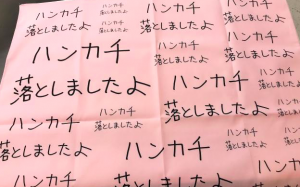 ハンカチ
落としましたよ
ハンカチ
落としましたよ
ハンカチ
落としましたよ
ハンカチ
落としましたよ
ハンカチ
落としましたよ
ハンカチ
落としましたよ
ハンカチ
落としましたよ
ハンカチ
落としましたよ
ハンカチ
落としましたよ
ハンカチ
落としましたよ
ハンカチ
落としましたよ
ハンカチ
落としましたよ
ハンカチ